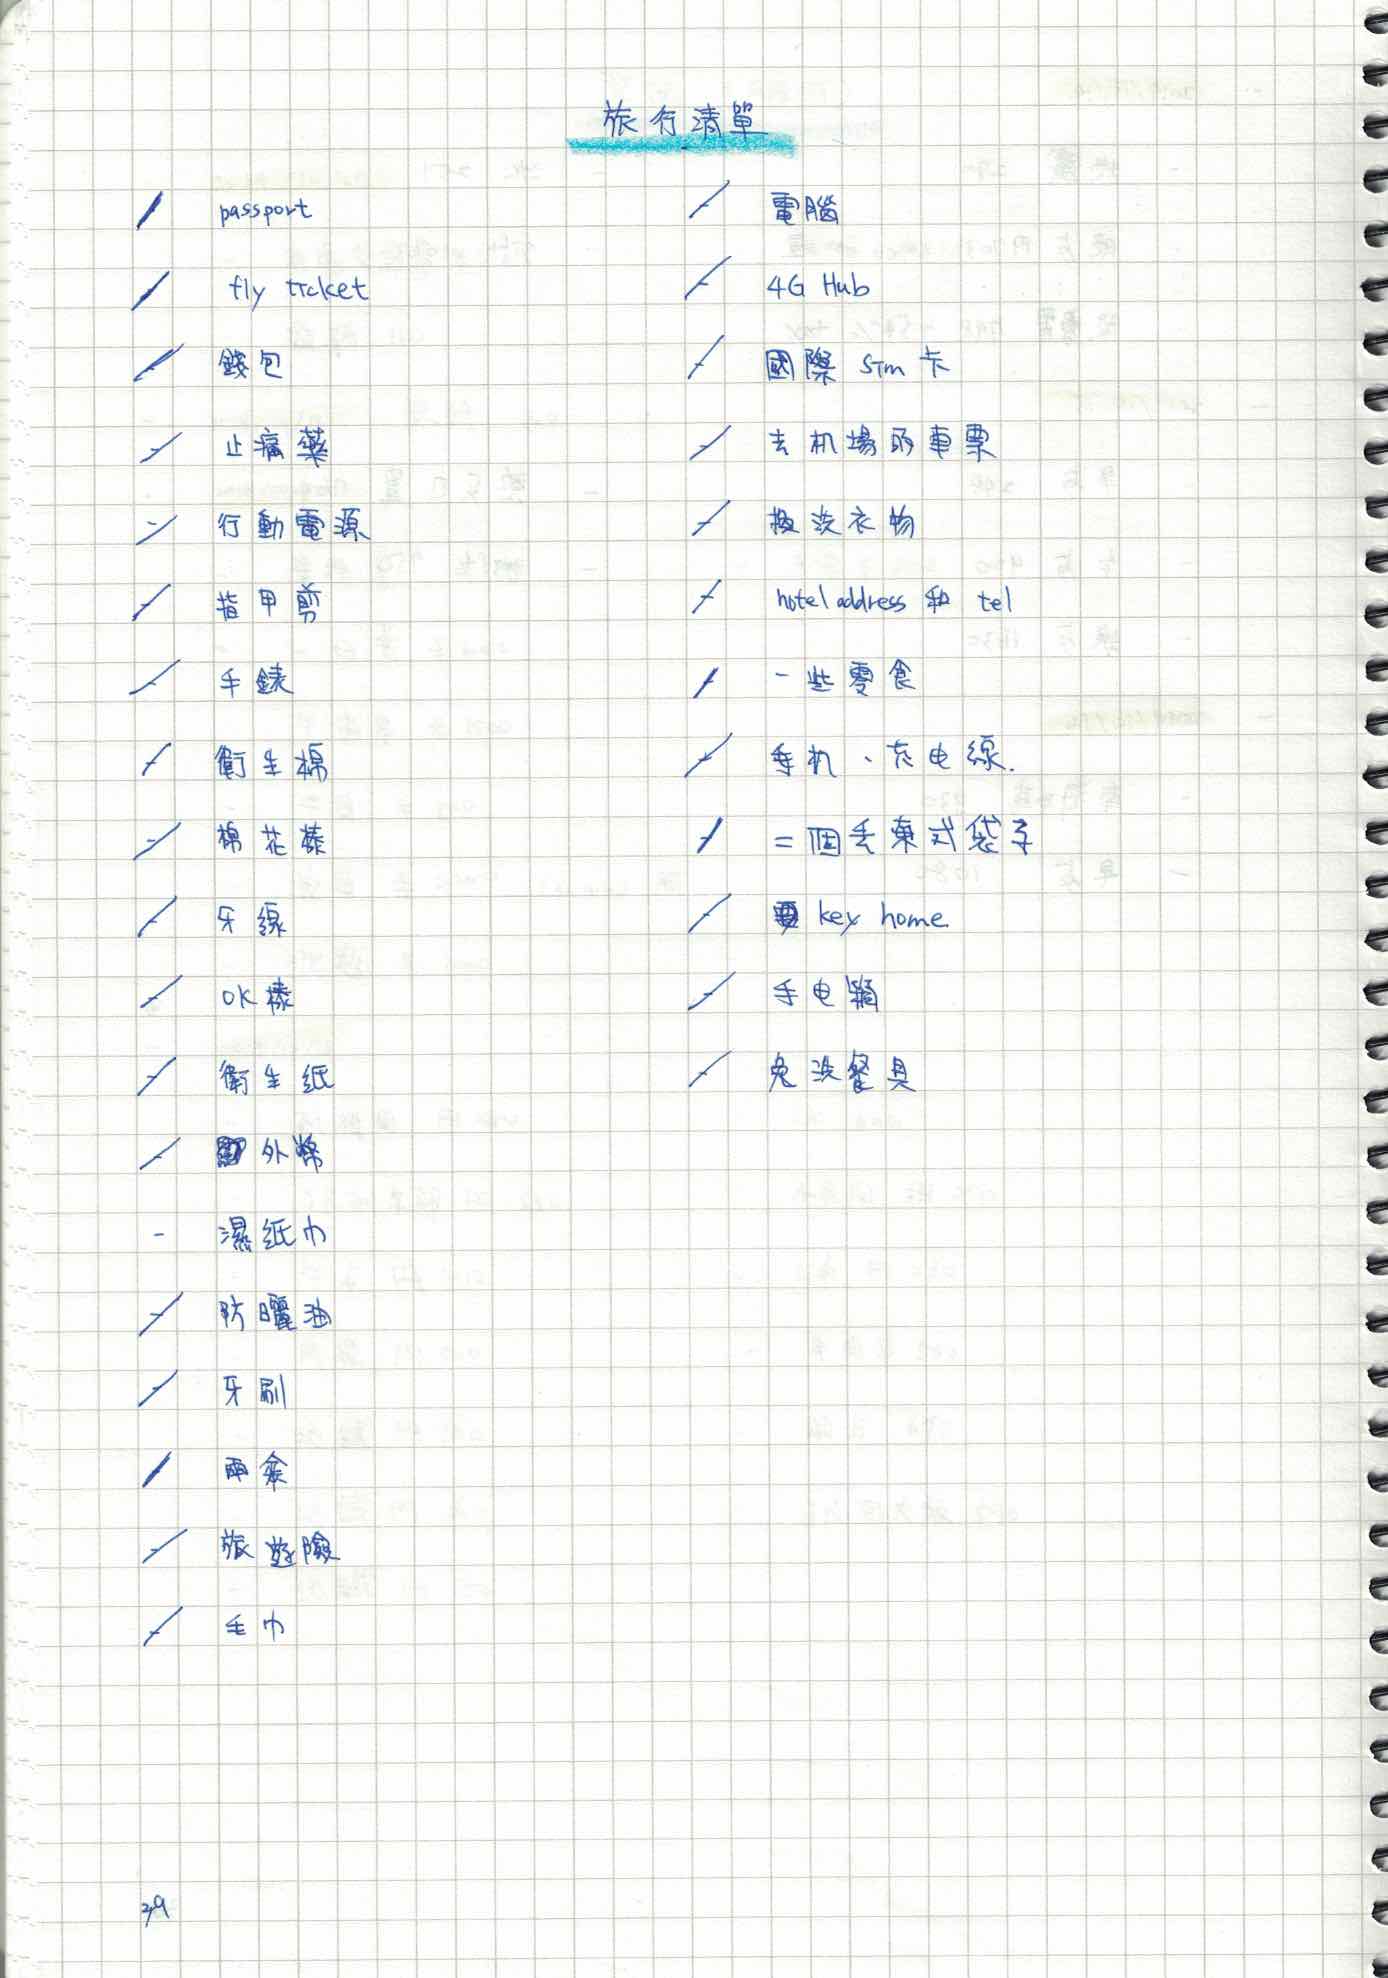 旅行清單
passport
fly ticket
錢包
止痛藥
行動電源
指甲剪
手錶
衛生棉
棉花棒
牙線
OK棒
衛生紙
外幣
濕紙巾
防曬油
牙刷
雨傘
旅遊險
毛巾
電腦
4G Hub
國際 sim 卡
去机場的車票
換洗衣物
hotel address 和 tel
一些零食
手机、充电線.
二個丟東式袋子
key home
手电筒
免洗餐具
39